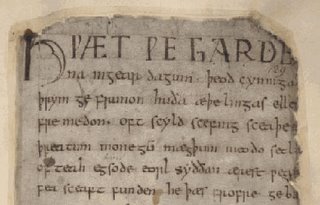 HǷÆT ǷE GARDE
na ingear dagum. þeod cyninga
þrym ge frunon huða æþelingas elle
fremedon. oft scyld scefing sceaþe
þreatum monegū mægþum meodo setla
of teah egsode eorl syððan ærest ƿea
sceaft funden he þæs frofre geba